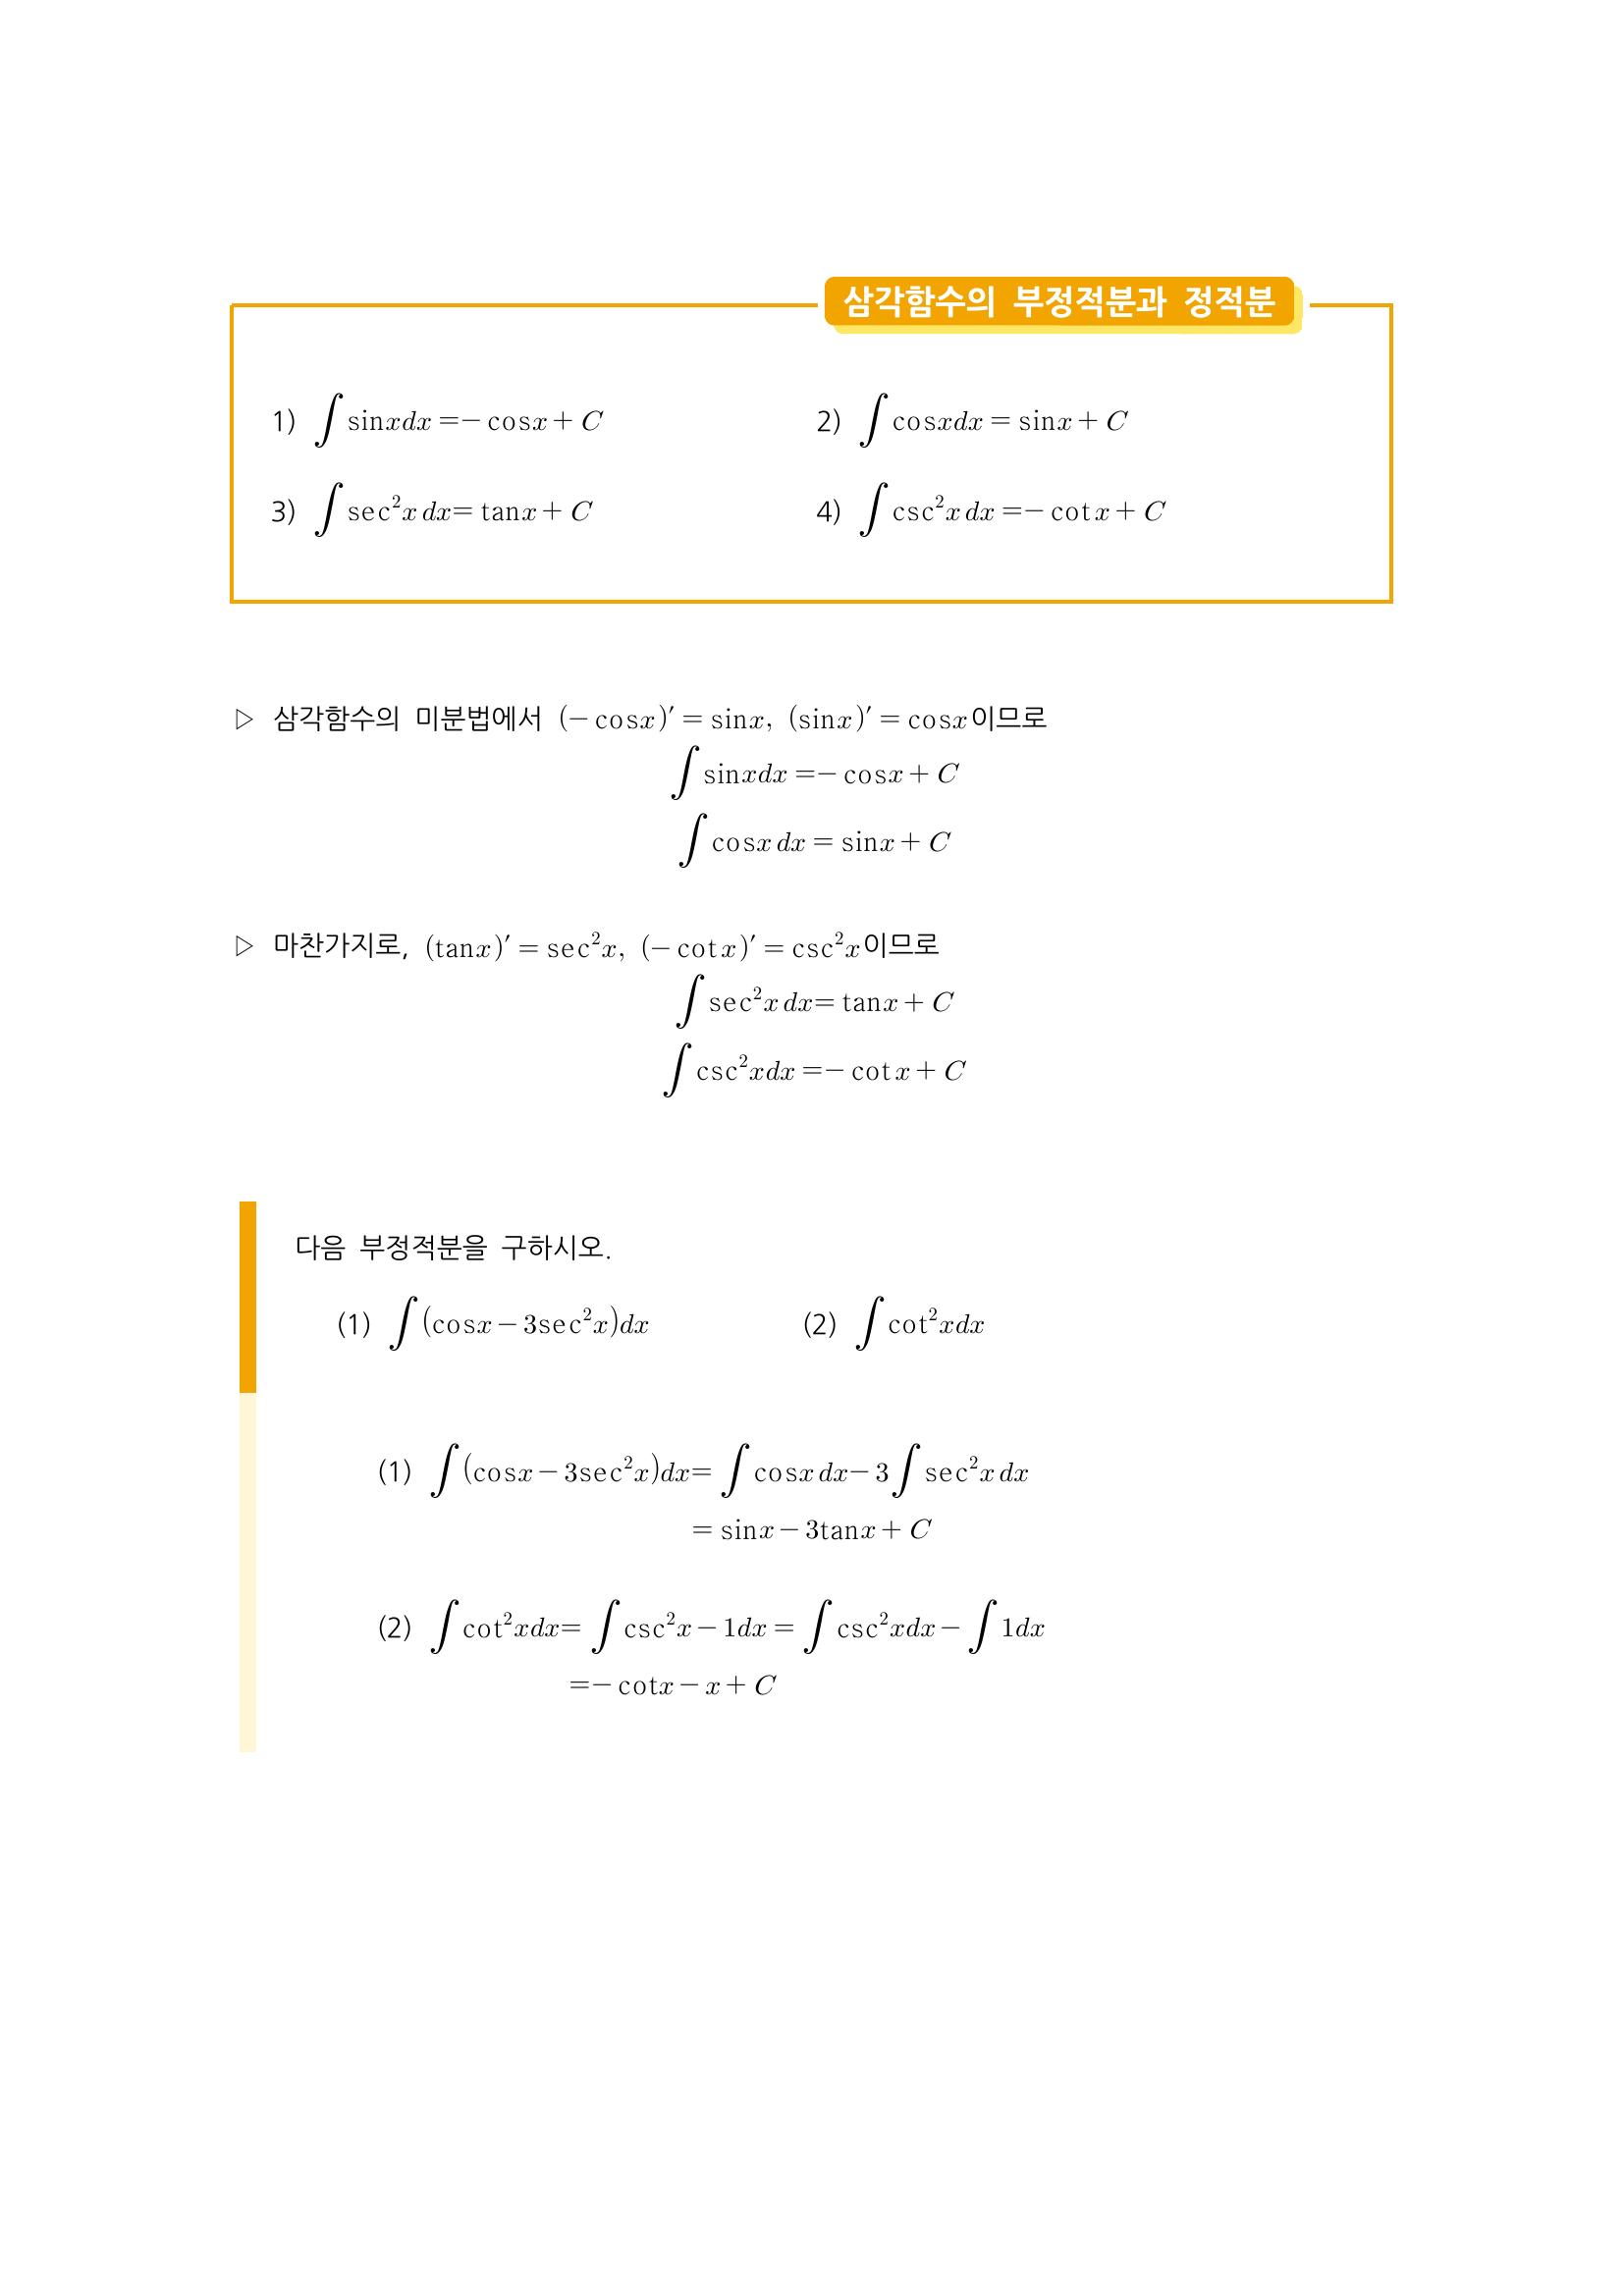 삼각함수의 부정적분과 정적분
1) ∫sinxdx =− cosx + C 2) ∫cosxdx = sinx + C
3) ∫sec²x dx= tanx + C 4) ∫csc²x dx =− cotx + C
▷ 삼각함수의 미분법에서 (− cosx)′ = sinx, (sinx)′ = cosx이므로
∫sinxdx =− cosx + C
∫cosx dx = sinx + C
▷ 마찬가지로, (tanx)′ = sec²x, (− cotx)′ = csc²x이므로
∫sec²x dx= tanx + C
∫csc²xdx =− cotx + C
다음 부정적분을 구하시오.
(1) ∫(cosx − 3sec²x)dx (2) ∫cot²xdx
(1) ∫(cosx − 3sec²x)dx= ∫cosx dx− 3∫sec²x dx
= sinx − 3tanx + C
(2) ∫cot²xdx= ∫csc²x − 1dx = ∫csc²xdx − ∫1dx
=− cotx − x + C